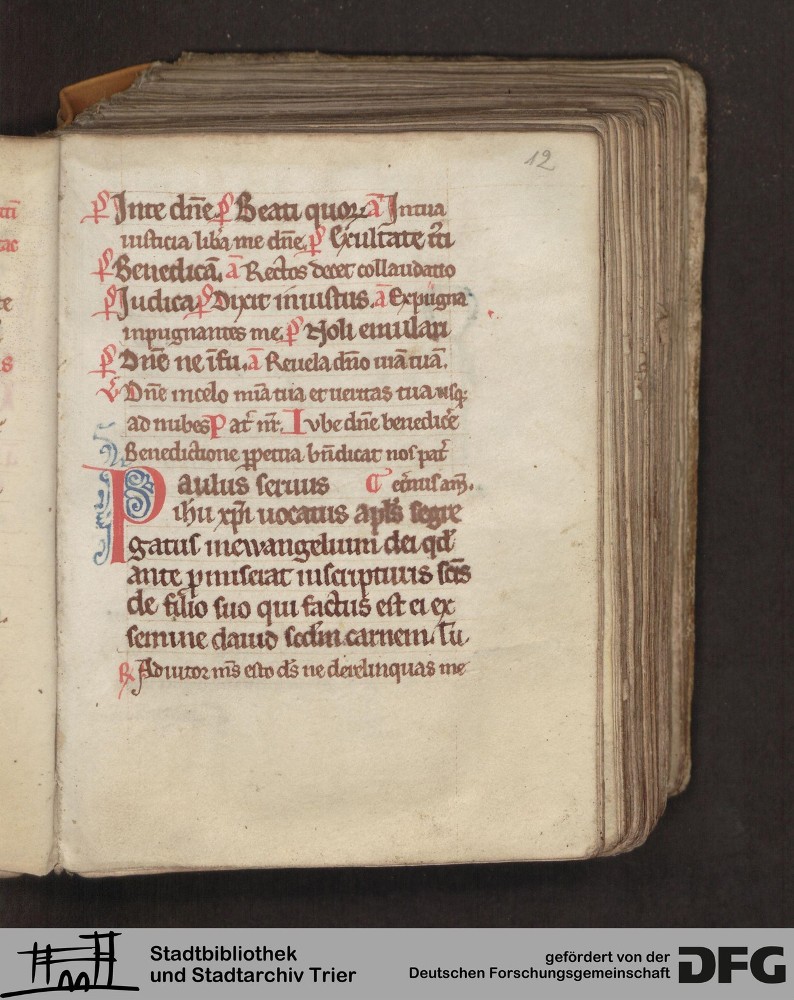 12
ps Inte dn̄e ps Beati quoꝝ a̅ In tua
iusticia liba me dn̄e ps Exultate
ps Benedicā. a̅ Rectos decet collaudatio
ps Judica ps Dixit iniustus. a̅ Expugna
inpugnantes me. ps Noli emulari
ps Dn̄e ne ī fu. a̅ Reuela dn̄o uiā tuā.
V Dn̄e in celo mīa tua et ueritas tua usq;
ad nubes Pat nr̄. Iube dn̄e benedice
Benedictione ꝑpetua bn̄dicat nos pat
Paulus seruus
ihu xp̄i uocatus apl̄s segre
gatus in ewangelium dei qd
ante pmiserat in scripturis scīs
de filio suo qui factus est ei ex
semine dauid scdm carnem. Tu
℟ Adiutor m̄s esto ds̄ ne derelinquas me
Stadtbibliothek
und Stadtarchiv Trier
gefördert von der
Deutschen Forschungsgemeinschaft
DFG